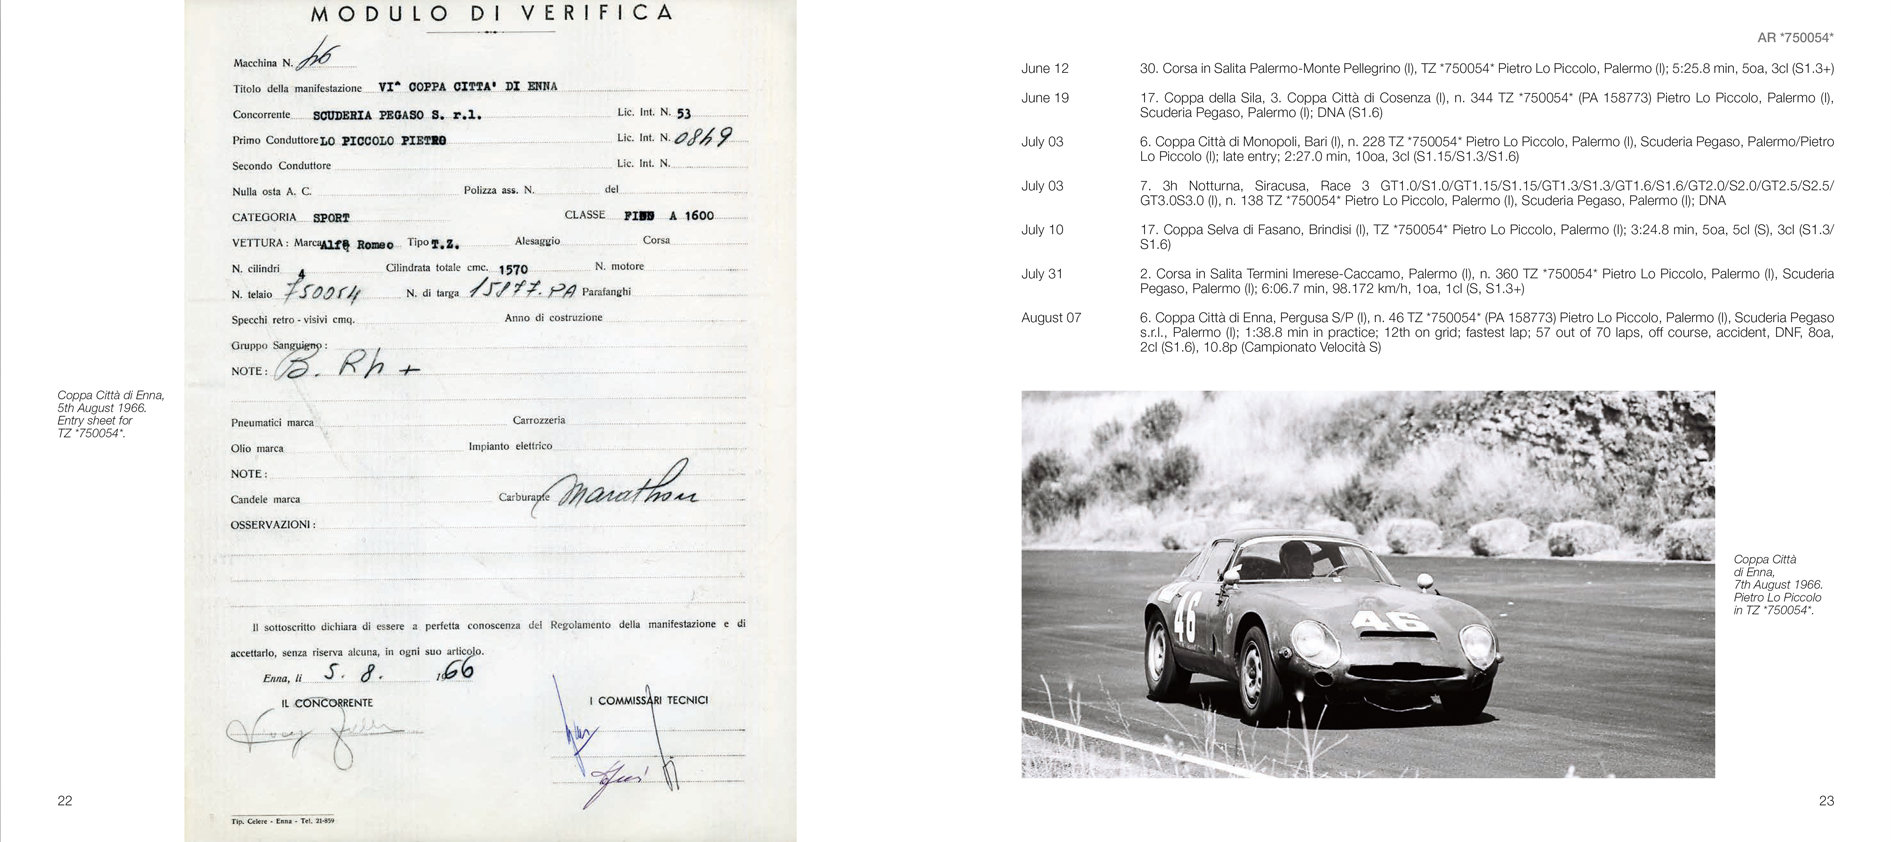 MODULO DI VERIFICA
Macchina N. 46
Titolo della manifestazione VI^ COPPA CITTA' DI ENNA
Concorrente SCUDERIA PEGASO S. r.l. Lic. Int. N. 53
Primo Conduttore LO PICCOLO PIETRO Lic. Int. N. 0869
Secondo Conduttore Lic. Int. N.
Nulla osta A. C. Polizza ass. N. del
CATEGORIA SPORT CLASSE FINO A 1600
VETTURA : Marca Alfa Romeo Tipo T.Z. Alesaggio Corsa
N. cilindri 4 Cilindrata totale cmc. 1570 N. motore
N. telaio 750054 N. di targa 15877.PA Parafanghi
Specchi retro - visivi cmq. Anno di costruzione
Gruppo Sanguigno :
NOTE : B. Rh +
Pneumatici marca Carrozzeria
Olio marca Impianto elettrico
NOTE :
Candele marca Carburante Marathon
OSSERVAZIONI :
Il sottoscritto dichiara di essere a perfetta conoscenza del Regolamento della manifestazione e di
accettarlo, senza riserva alcuna, in ogni suo articolo.
Enna, li 5. 8. 1966
IL CONCORRENTE I COMMISSARI TECNICI
Tip. Celere - Enna - Tel. 21-859
Coppa Città di Enna,
5th August 1966.
Entry sheet for
TZ *750054*.
22
AR *750054*
June 12 30. Corsa in Salita Palermo-Monte Pellegrino (I), TZ *750054* Pietro Lo Piccolo, Palermo (I); 5:25.8 min, 5oa, 3cl (S1.3+)
June 19 17. Coppa della Sila, 3. Coppa Città di Cosenza (I), n. 344 TZ *750054* (PA 158773) Pietro Lo Piccolo, Palermo (I),
Scuderia Pegaso, Palermo (I); DNA (S1.6)
July 03 6. Coppa Città di Monopoli, Bari (I), n. 228 TZ *750054* Pietro Lo Piccolo, Palermo (I), Scuderia Pegaso, Palermo/Pietro
Lo Piccolo (I); late entry; 2:27.0 min, 10oa, 3cl (S1.15/S1.3/S1.6)
July 03 7. 3h Notturna, Siracusa, Race 3 GT1.0/S1.0/GT1.15/S1.15/GT1.3/S1.3/GT1.6/S1.6/GT2.0/S2.0/GT2.5/S2.5/
GT3.0S3.0 (I), n. 138 TZ *750054* Pietro Lo Piccolo, Palermo (I), Scuderia Pegaso, Palermo (I); DNA
July 10 17. Coppa Selva di Fasano, Brindisi (I), TZ *750054* Pietro Lo Piccolo, Palermo (I); 3:24.8 min, 5oa, 5cl (S), 3cl (S1.3/
S1.6)
July 31 2. Corsa in Salita Termini Imerese-Caccamo, Palermo (I), n. 360 TZ *750054* Pietro Lo Piccolo, Palermo (I), Scuderia
Pegaso, Palermo (I); 6:06.7 min, 98.172 km/h, 1oa, 1cl (S, S1.3+)
August 07 6. Coppa Città di Enna, Pergusa S/P (I), n. 46 TZ *750054* (PA 158773) Pietro Lo Piccolo, Palermo (I), Scuderia Pegaso
s.r.l., Palermo (I); 1:38.8 min in practice; 12th on grid; fastest lap; 57 out of 70 laps, off course, accident, DNF, 8oa,
2cl (S1.6), 10.8p (Campionato Velocità S)
46
46
Coppa Città
di Enna,
7th August 1966.
Pietro Lo Piccolo
in TZ *750054*.
23